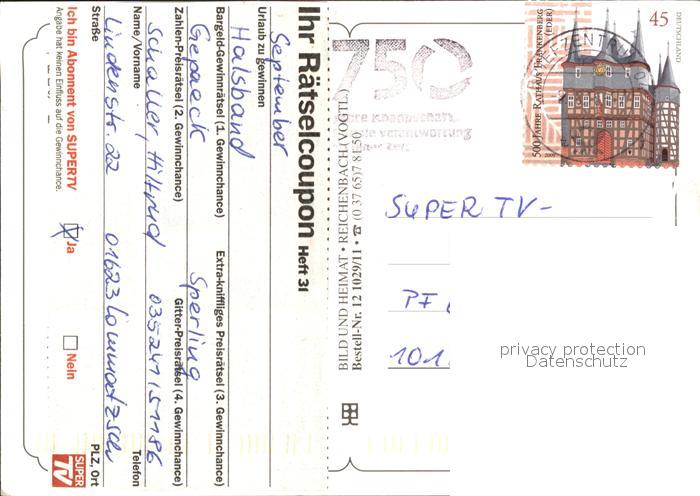 Ihr Rätselcoupon Heft 31
September
Urlaub zu gewinnen
Halsband
Bargeld-Gewinnrätsel (1. Gewinnchance)
Extra-kniffliges Preisrätsel (3. Gewinnchance)
Gepaeck
Sperling
Zahlen-Preisrätsel (2. Gewinnchance)
Gitter-Preisrätsel (4. Gewinnchance)
Schaller, Hiltrud
035241151186
Name/Vorname
Telefon
Lindenstr. 22
01623 Lommatzsch
Straße
PLZ, Ort
Ich bin Abonnent von SUPERTV
Angabe hat keinen Einfluss auf die Gewinnchance.
Ja
Nein
SUPER TV
BILD UND HEIMAT • REICHENBACH (VOGTL.)
Bestell-Nr. 12 1029/11 • ☎ (0 37 65) 7 81 50
750
Knappschaft.
Verantwortung
BRIEFZENTRUM
500 JAHRE RATHAUS FRANKENBERG
(EDER)
45
DEUTSCHLAND
SUPER TV-
PF
101
privacy protection
Datenschutz